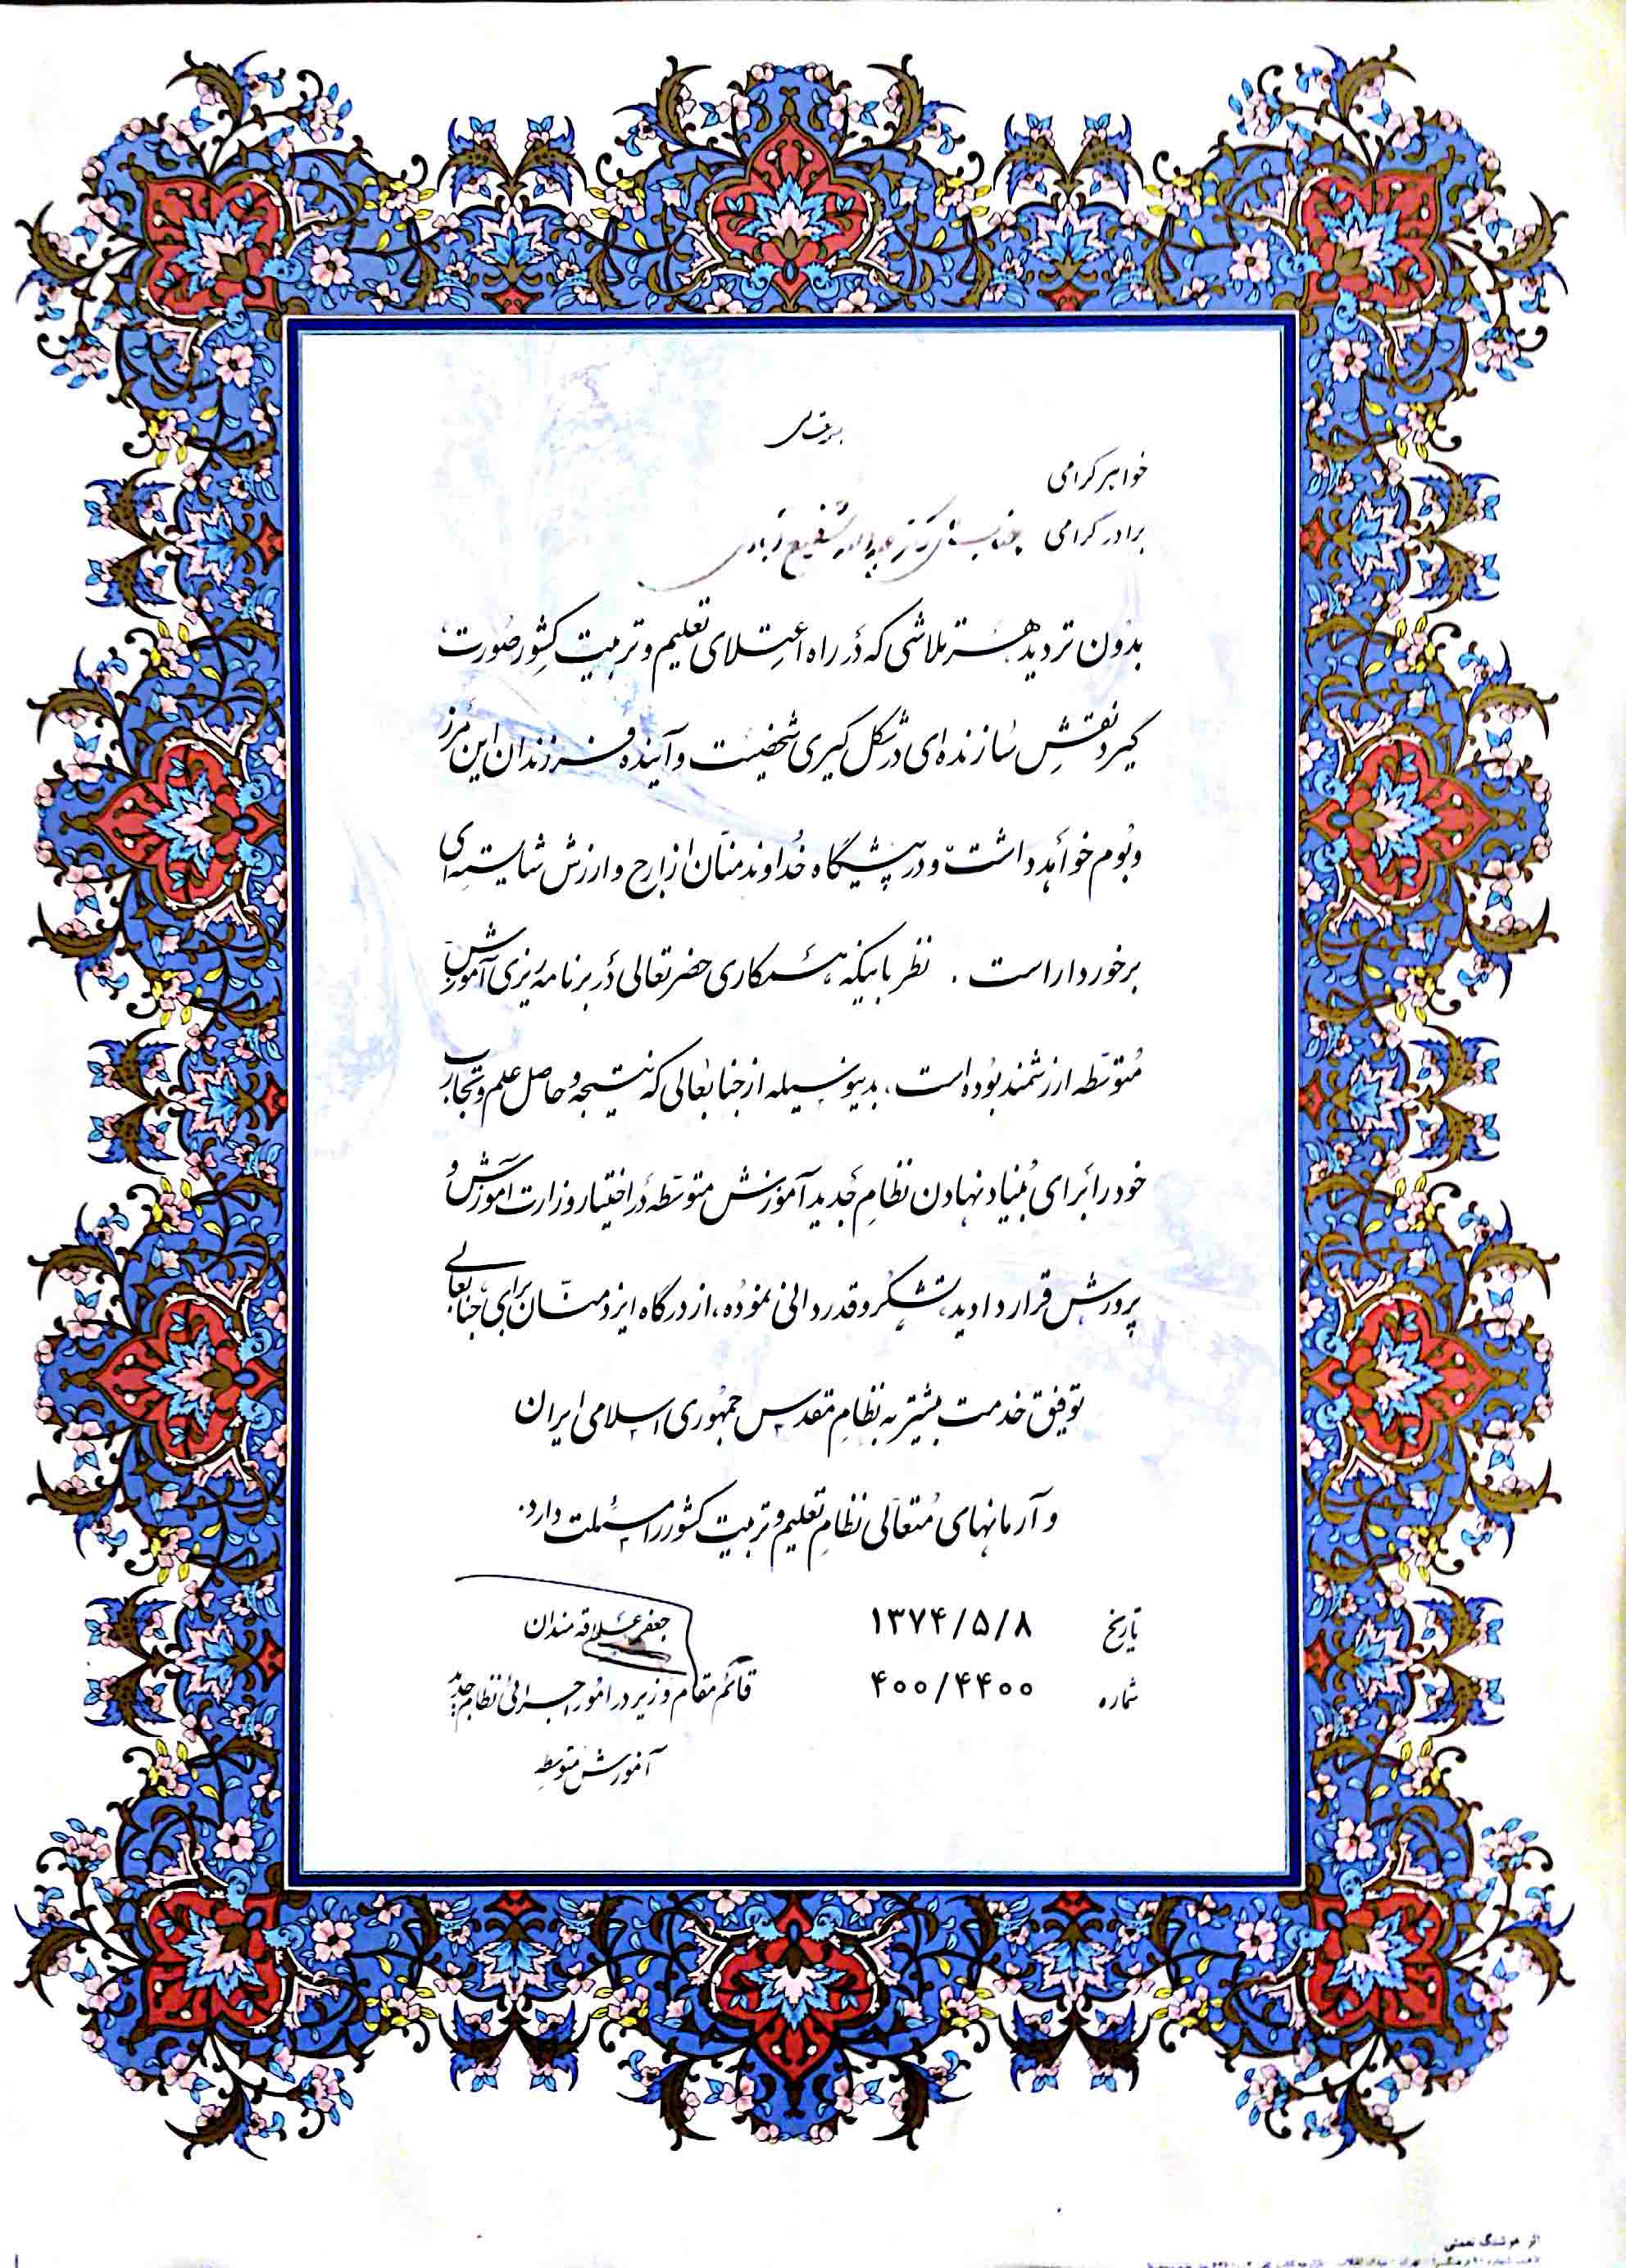 بسمه تعالی
خواهر گرامی
برادر گرامی جناب آقای دکتر عبدالله شفیع آبادی
بدون تردید هر تلاشی که در راه اعتلای تعلیم و تربیت کشور صورت
گیرد نقش سازنده‌ای در شکل گیری شخصیت و آینده فرزندان این مرز
و بوم خواهد داشت و در پیشگاه خداوند منان از ارج و ارزش شایسته‌ای
برخوردار است . نظر باینکه همکاری حضرتعالی در برنامه‌ریزی آموزش
متوسطه ارزشمند بوده است، بدینوسیله از جنابعالی که نتیجه و حاصل علم و تجارب
خود را برای بنیاد نهادن نظام جدید آموزش متوسطه در اختیار وزارت آموزش و
پرورش قرار دادید، تشکر و قدردانی نموده، از درگاه ایزد منان برای جنابعالی
توفیق خدمت بیشتر به نظام مقدس جمهوری اسلامی ایران
و آرمانهای متعالی نظام تعلیم و تربیت کشور را مسئلت دارد.
تاریخ ۱۳۷۴/۵/۸
شماره ۴۰۰/۴۴۰۰
جعفر علاقه مندان
قائم مقام وزیر در امور اجرائی نظام جدید
آموزش متوسطه
اثر هوشنگ نعمتی